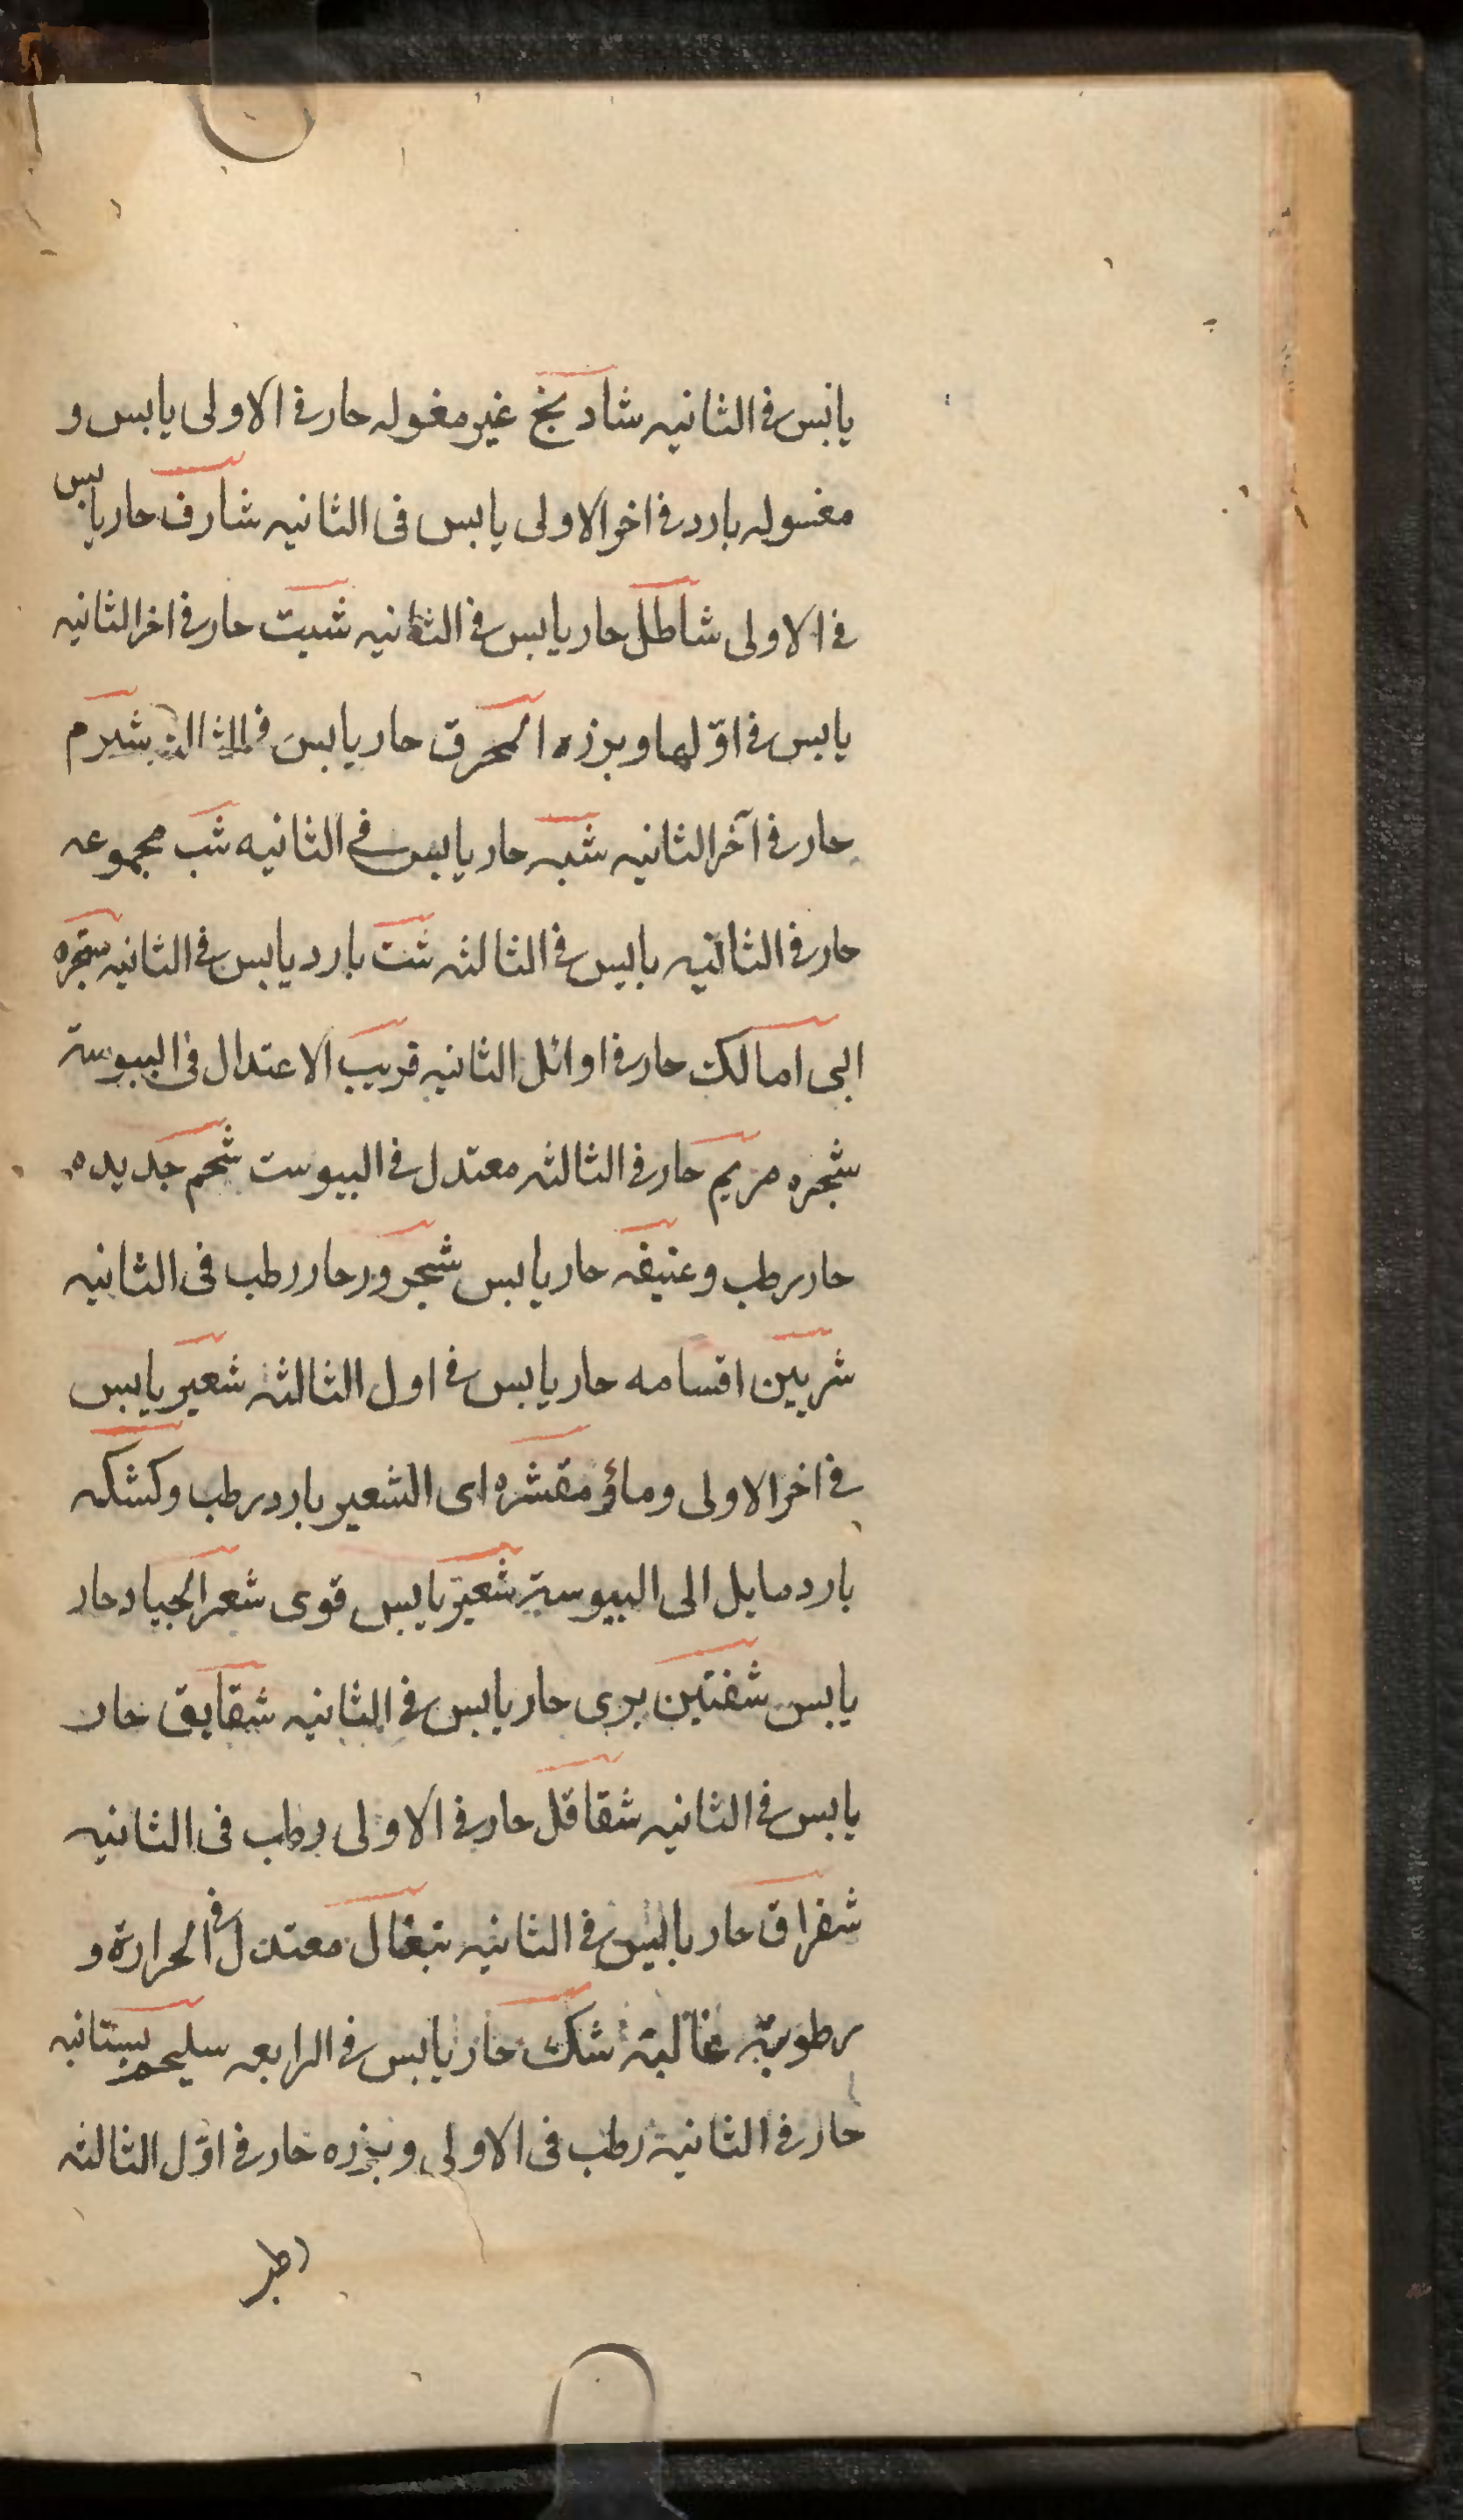 يابس في الثانيه شادنج غير مغوله حار في الاولى يابس و
مغسوله بارد في اخر الاولى يابس في الثانيه شارف حار يابس
في الاولى شاطل حار يابس في الثانيه شبت حار في اخر الثانيه
يابس في اوّلها وبزره المحرق حار يابس في الثالثه شبرم
حار في آخر الثانيه شبه حار يابس في الثانيه شب مجموعه
حار في الثانيه يابس في الثالثه شث بارد يابس في الثانيه شجره
ابى امالك حار في اوائل الثانيه قريب الاعتدال في اليبوسة
شجره مريم حار في الثالثه معتدل في اليبوست شحم جديده
حار رطب وعتيقه حار يابس شحرور حار رطب في الثانيه
شربين اقسامه حار يابس في اول الثالثه شعير يابس
في اخر الاولى وماؤ مقشره اى الشعير بارد رطب وكشكه
بارد مايل الى اليبوسة شعير يابس قوى شعر الجياد حار
يابس شفنين برى حار يابس في الثانيه شقايق حار
يابس في الثانيه شقاقل حار في الاولى رطب في الثانيه
شقراق حار يابس في الثانيه شغال معتدل في الحرارة و
رطوبة غالبة شك حار يابس في الرابعه سليحم بستانيه
حار في الثانية رطب في الاولى وبزره حار في اوّل الثالثه
رطب